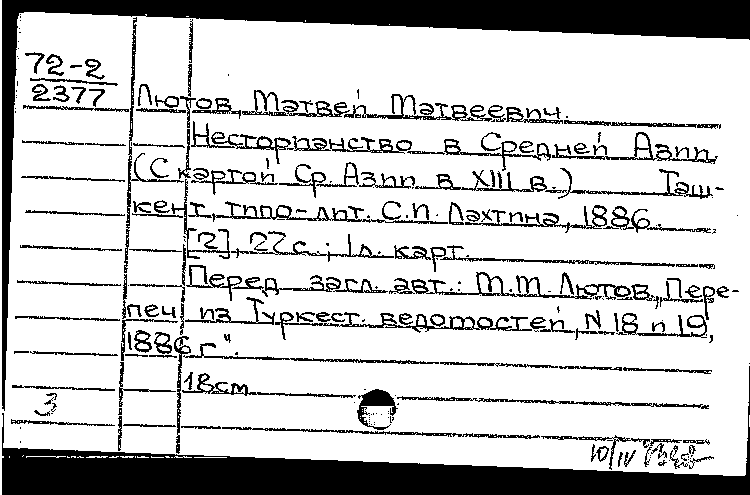 72-2
2377
Лютов, Матвей Матвеевич.
Несторианство в Средней Азии.
(С картой Ср. Азии в XIII в.) Таш-
кент, типо-лит. С.П. Лахтина, 1886.
[2], 27 с.; 1 л. карт.
Перед загл. авт.: М.М. Лютов, „Пере-
печ. из Туркест. ведомостей, N 18 и 19,
1886 г".
18 см
3
10/IV